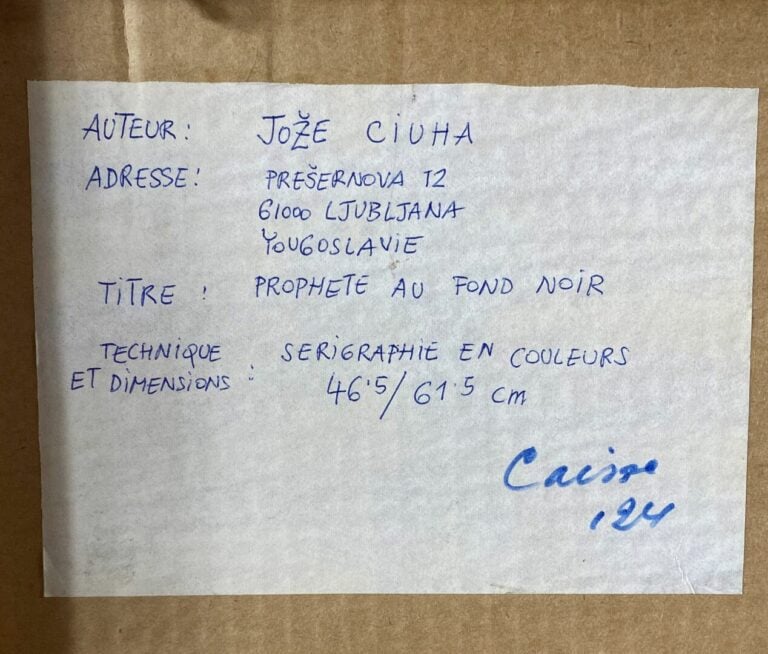 AUTEUR: JOŽE CIUHA
ADRESSE: PREŠERNOVA 12
61000 LJUBLJANA
YOUGOSLAVIE
TITRE: PROPHETE AU FOND NOIR
TECHNIQUE SERIGRAPHIE EN COULEURS
ET DIMENSIONS: 46.5/61.5 cm
Caisse
124